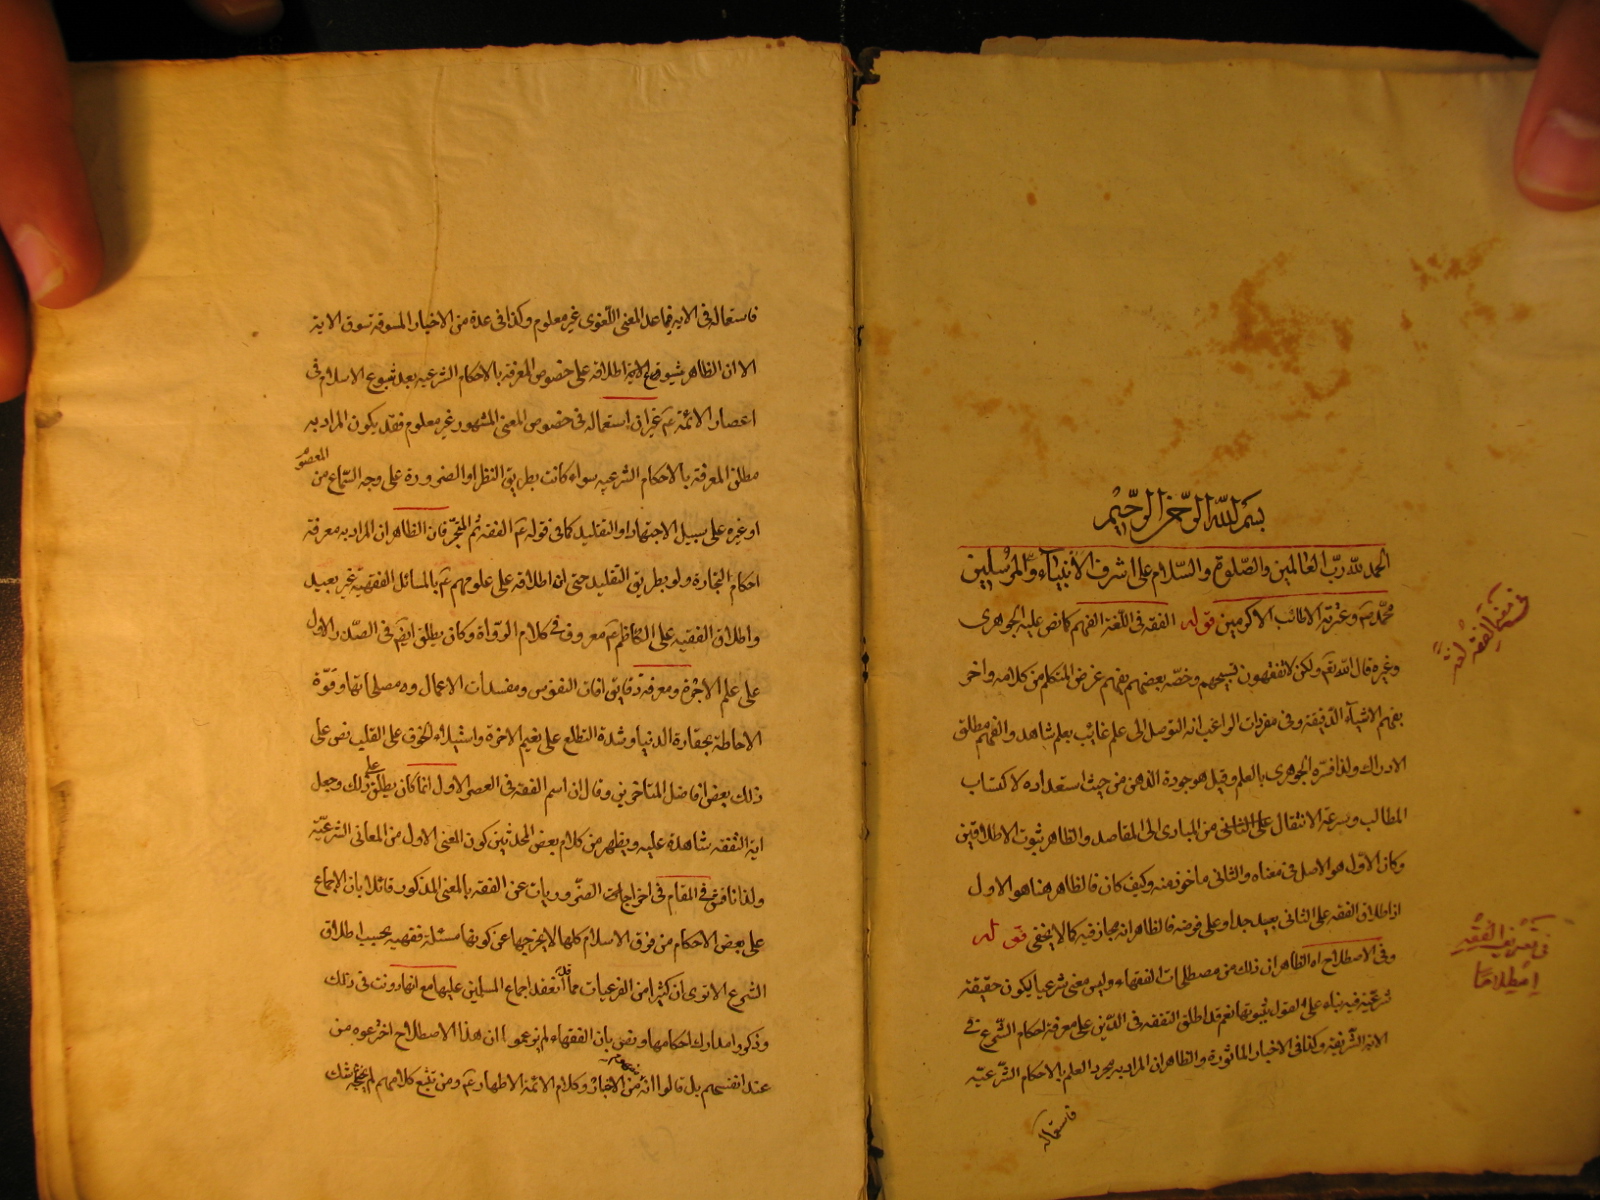 بسم الله الرحمن الرحيم
الحمد لله رب العالمين والصلوة والسلام على اشرف الأنبياء والمرسلين
محمد ص وعترته الاطائب الاكرمين قوله الفقه فى اللغة الفهم كما نص عليه الجوهرى
وغيره قال الله تعم ولكن لا تفقهون تسبيحهم وخصه بعضهم بفهم غرض المتكلم من كلامه واخر
بفهم الاشياء الدقيقة وفى مفردات الراغب انه التوصل الى علم غائب بعلم شاهد والفهم مطلق
الادراك ولذا فسره الجوهرى بالعلم وقيل هو جودة الذهن من حيث استعداده لاكتساب
المطالب وسرعة الانتقال على الثانى من المبادى الى المقاصد والظاهر ثبوت الاطلاقين
وكان الاول هو الاصل فى معناه والثانى ماخوذ منه وكيف كان فالظاهر هنا هو الاول
اذ اطلاق الفقه على الثانى بعيد جدا وعلى فرضه فالظاهر انه مجاز فيه كما لا يخفى قوله
وفى الاصطلاح اه الظاهر ان ذلك من مصطلحات الفقهاء وليس معنى شرعيا ليكون حقيقة
شرعية فيه بناء على القول بثبوتها نعم قد اطلق التفقه فى الدين على معرفة احكام الشرع فى
الاية الشريفة وكذا فى الاخبار الماثورة والظاهر ان المراد به مجرد العلم بالاحكام الشرعية
فاستعماله
فى تفسير الفقه لغة
فى تعريف الفقه
اصطلاحا
فاستعماله فى الاية فيما عدا المعنى اللغوى غير معلوم وكذا فى عدة من الاخبار المسوقة تسوق الاية
الا ان الظاهر شيوع اطلاقه على خصوص المعرفة بالاحكام الشرعيه بعد شيوع الاسلام فى
اعصار الائمة ع غير ان استعماله فى خصوص المعنى المشهور غير معلوم فقد يكون المراد به
مطلق المعرفة بالاحكام الشرعيه سواء كانت بطريق النظر او الضرورة على وجه السماع من المعصوم
او غيره على سبيل الاجتهاد او التقليد كما فى قوله ع الفقه ثم المتجر فان الظاهر ان المراد به معرفة
احكام التجارة ولو بطريق التقليد حتى ان اطلاقه على علومهم ع بالمسائل الفقهية غير بعيد
واطلاق الفقيه على الكاظم ع معروف فى كلام الرواة وكان يطلق ايضا فى الصدر الاول
على علم الاخرة ومعرفة دقايق افات النفوس ومفسدات الاعمال ومصلحاتها وقوة
الاحاطة بحقارة الدنيا وشدة التطلع على نعيم الاخرة واستيلاء الخوف على القلب نص على
ذلك بعض افاضل المتاخرين وقال ان اسم الفقه فى العصر الاول انما كان يطلق على ذلك وجعل
اية التفقه شاهدة عليه ويظهر من كلام بعض المحدثين كون المعنى الاول من المعانى الشرعية
ولذا ناقش فى المقام فى اخراج الضروريات عن الفقه بالمعنى المذكور قائلا بان الاجماع
على بعض الاحكام من فرق الاسلام كلها لا يخرجها عن كونها مسئلة فقهيه بحسب اطلاق
الشرع الا ترى ان كثيرا من الفرعيات مما قد انعقد اجماع المسلمين عليها مع انها دونت فى ذلك
وذكروا مدارك احكامها ونص بان الفقهاء لم يزعموا ان هذا الاصطلاح اخترعوه من
عند انفسهم بل قالوا انه من الاخبار وكلام الائمة الاطهار ع ومن تتبع كلامهم لم يختلجه شك